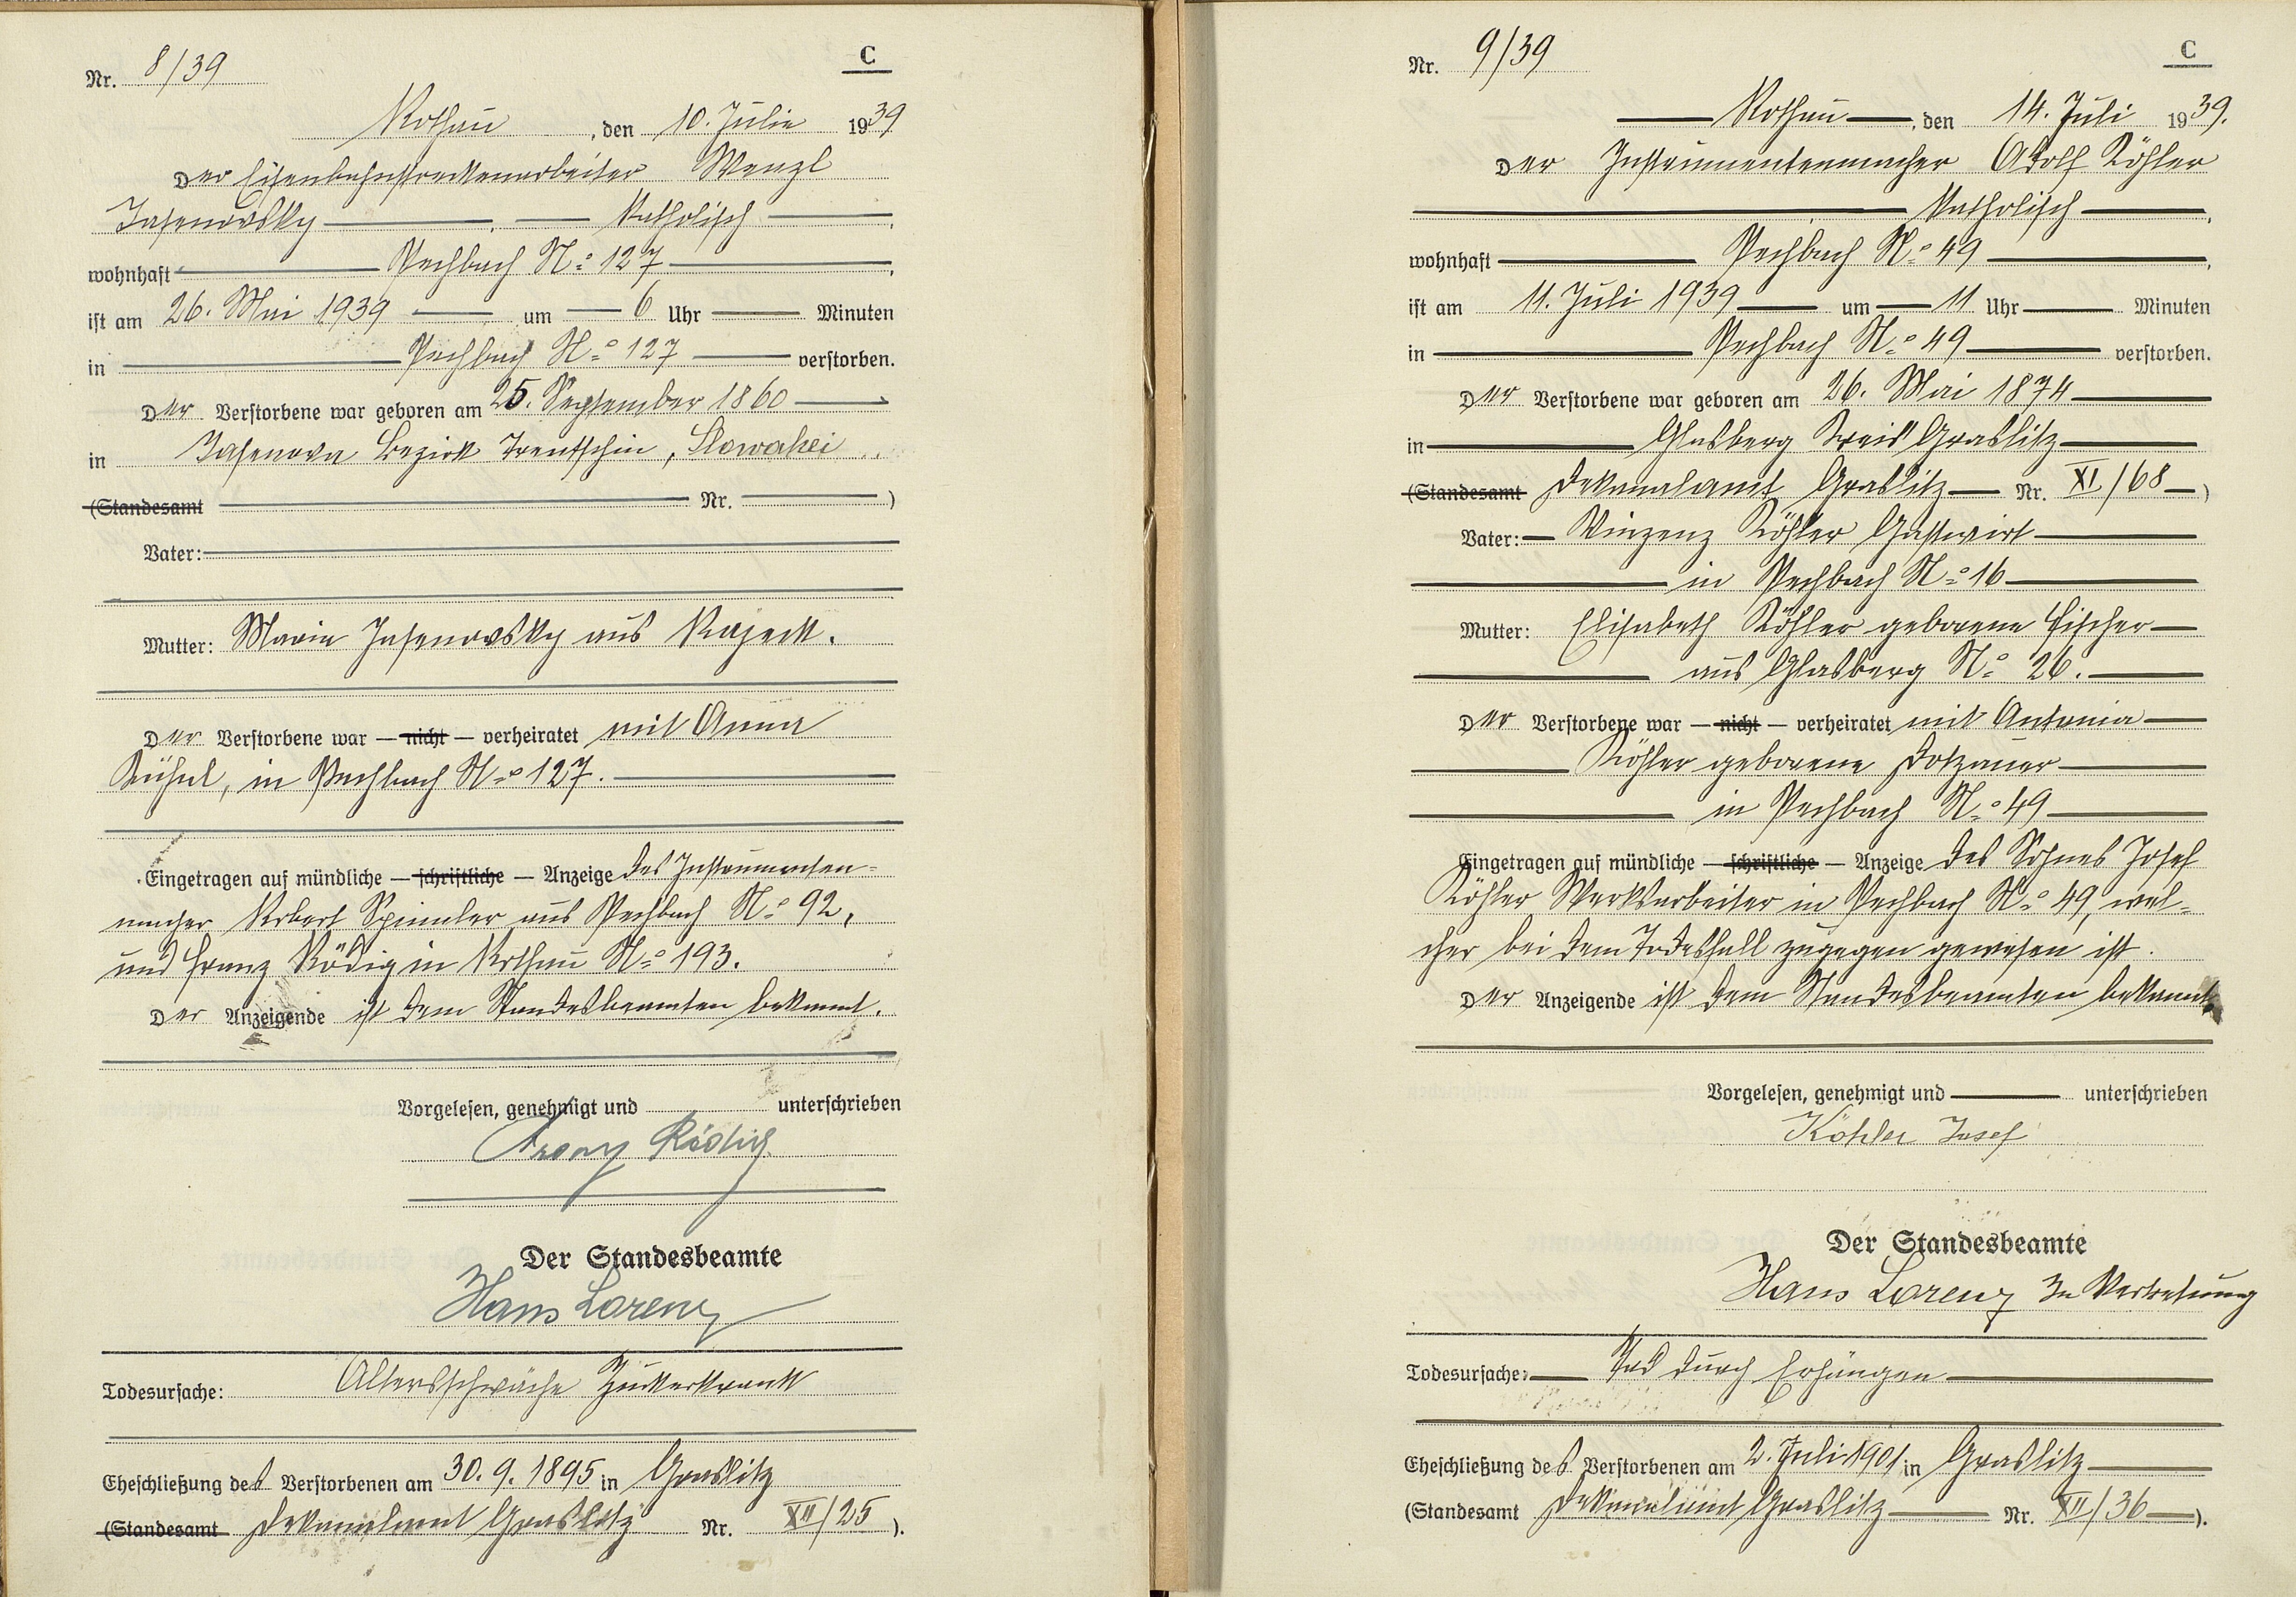 C
Nr. 8/39
Rothau, den 10. Julie 1939
Der Eisenbahnstreckenarbeiter Wenzl
Jasenovsky, katholisch,
wohnhaft Pechbach No 127,
ist am 26. Mai 1939 um 6 Uhr Minuten
in Pechbach No 127 verstorben.
Der Verstorbene war geboren am 25. September 1860
in Jasenova Bezirk Trentschin, Slowakei
(Standesamt Nr. )
Vater:
Mutter: Maria Jasenovsky aus Rajeck.
Der Verstorbene war — nicht — verheiratet mit Anna
Kühnl, in Pechbach No 127.
Eingetragen auf mündliche — schriftliche — Anzeige des Instrumenten=
macher Robert Spinnler aus Pechbach No 92,
und Franz Rödig in Rothau No 193.
Der Anzeigende ist dem Standesbeamten bekannt.
Vorgelesen, genehmigt und unterschrieben
Franz Rödig
Der Standesbeamte
Hans Lorenz
Todesursache: Altersschwäche Zuckerkrank
Eheschließung des Verstorbenen am 30. 9. 1895 in Graslitz
(Standesamt Dekanalamt Graslitz Nr. XII/25 ).
C
Nr. 9/39
Rothau, den 14. Juli 1939.
Der Instrumentenmacher Adolf Köhler
katholisch,
wohnhaft Pechbach No 49,
ist am 11. Juli 1939 um 11 Uhr Minuten
in Pechbach No 49 verstorben.
Der Verstorbene war geboren am 26. Mai 1874
in Glasberg Kreis Graslitz
(Standesamt Dekanalamt Graslitz Nr. XI/68 )
Vater: Vinzenz Köhler Gastwirt
in Pechbach No 16
Mutter: Elisabeth Köhler geborene Fischer
aus Glasberg No 26.
Der Verstorbene war — nicht — verheiratet mit Antonia
Köhler geborene Dotzauer
in Pechbach No 49
Eingetragen auf mündliche — schriftliche — Anzeige des Sohnes Josef
Köhler Werksarbeiter in Pechbach No 49, wel=
cher bei dem Todesfall zugegen gewesen ist.
Der Anzeigende ist dem Standesbeamten bekannt
Vorgelesen, genehmigt und unterschrieben
Köhler Josef
Der Standesbeamte
Hans Lorenz In Vertretung
Todesursache: Tod durch Erhängen
Eheschließung des Verstorbenen am 2. Juli 1901 in Graslitz
(Standesamt Dekanalamt Graslitz Nr. XII/36 ).